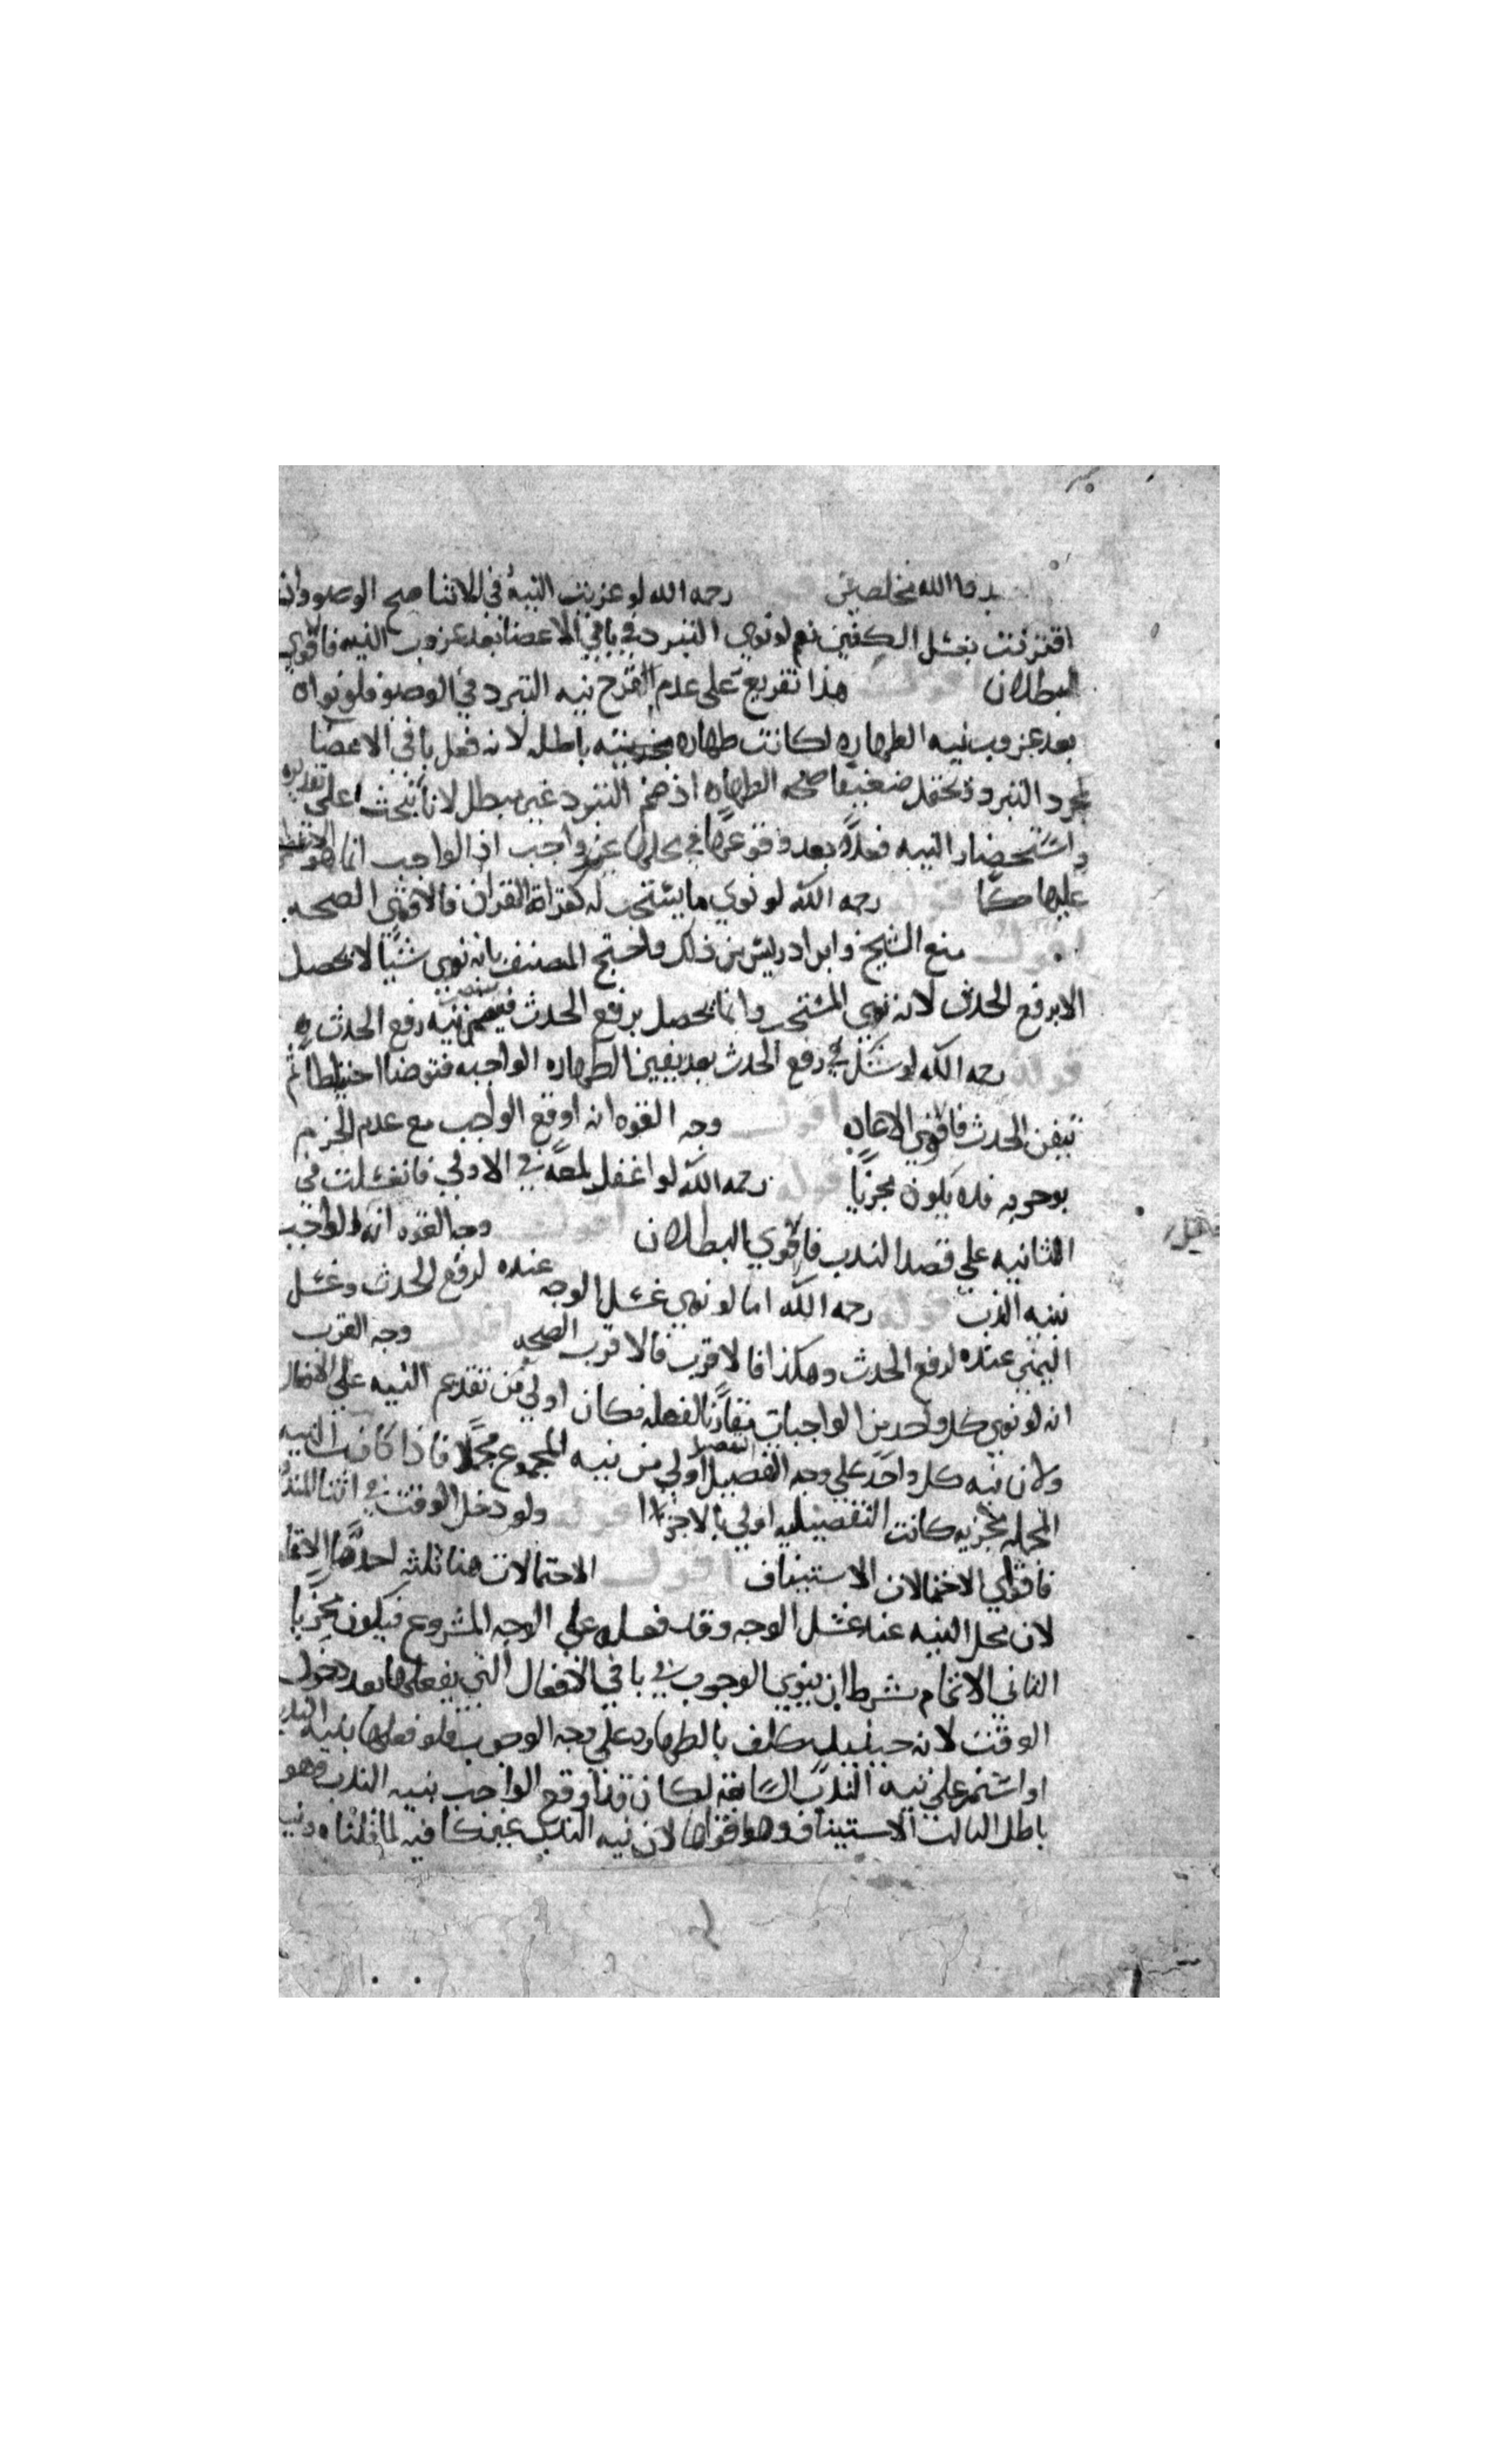 الله مخلصين قوله رحمه الله لو عزبت النية في الاثنا صح الوضو وان
اقترنت بغسل الكفين نعم لو نوي التبرد في باقي الاعضا بعد عزوب النيه فالاقوي
البطلان اقول هذا تفريع على عدم القدح بنيه التبرد في الوضو فلو نواه
بعد عزوب نيه الطهاره لكانت طهارة باطله لانه فعل باقي الاعضا
لمجرد التبرد ويحتمل ضعيفا صحه الطهاره اذ ضم التبرد غير مبطل لانا نبحث على تقديره
واستحضار النيه فعلا بعد وقوعها في محلها غير واجب اذ الواجب انما هو
عليها حكما قوله رحمه الله لو نوي ما يستحب له كقراة القران فالاقوي الصحه
اقول منع الشيخ وابن ادريس من ذلك واحتج المصنف بانه نوي شيا لا يحصل
الا برفع الحدث لانه نوي المستحب وانما يحصل برفع الحدث نيه رفع الحدث
قوله رحمه الله لو شك في رفع الحدث بعد يقين الطهاره الواجبه فتوضا احتياطا ثم
تيقن الحدث فالاقوي الاعاده اقول وجه القوه انه اوقع الواجب مع عدم الجزم
بوجوبه فلا يكون مجزيا قوله رحمه الله لو اغفل لمعه في الاولي فانغسلت في
الثانيه علي قصد الندب فالاقوي البطلان اقول وجه القوه الواجب
بنيه الندب قوله رحمه الله اما لو نوي غسل الوجه عنده لرفع الحدث وغسل
اليمني عنده لرفع الحدث وهكذا فالاقرب الصحه اقول وجه القرب
انه لو نوي كل واحد من الواجبات مقارنا لفعله فكان اولي من تقديم النيه علي الافعال
ولان نيه كل واحد علي وجه التفصيل اولي من نيه المجموع مجملا فاذا كانت النيه
المجمله مجزيه كانت التفصيليه اولي بالاجزا قوله ولو دخل الوقت في اثنا المندوب
فاقوي الاحتمالات الاستيناف اقول الاحتمالات هنا ثلثه احدها الاتمام
لان محل النيه عند غسل الوجه وقد فعله علي الوجه المشروع فيكون مجزيا
الثاني الاتمام بشرط ان ينوي الوجوب في باقي الافعال التي يفعلها بعد دخول
الوقت لانه حينيذ مكلف بالطهاره علي وجه الوجوب فلو فعلها بنيه الندب
او استمر علي نيه الندب السابقه لكان قد اوقع الواجب بنيه الندب وهو
باطل الثالث الاستيناف وهو اقواها لان نيه الندب غير كافيه لما قلناه